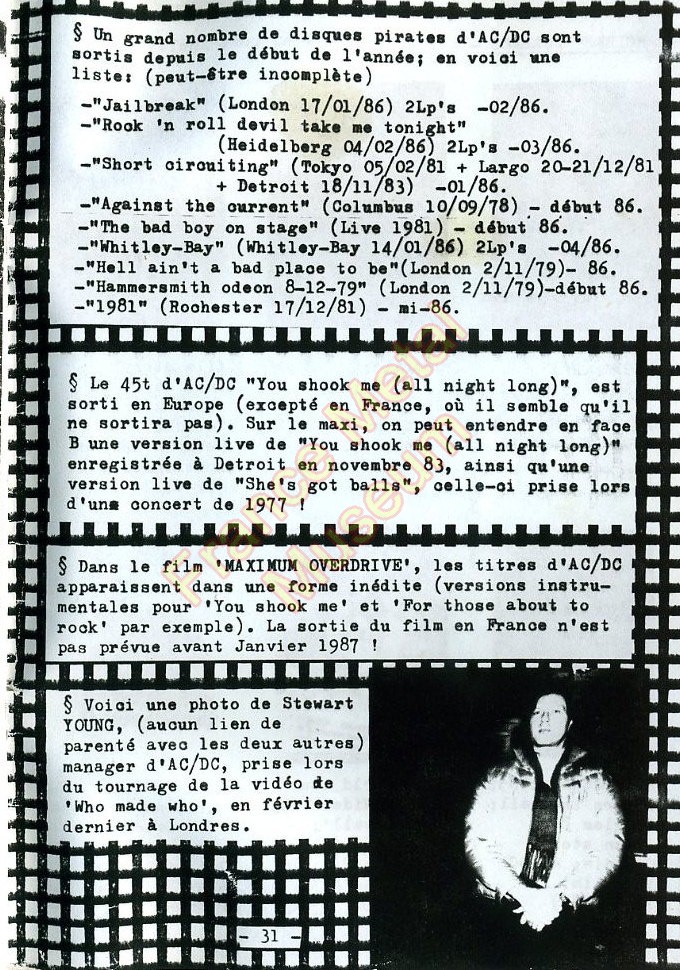 § Un grand nombre de disques pirates d'AC/DC sont
sortis depuis le début de l'année; en voici une
liste: (peut-être incomplète)
-"Jailbreak" (London 17/01/86) 2Lp's -02/86.
-"Rock 'n roll devil take me tonight"
(Heidelberg 04/02/86) 2Lp's -03/86.
-"Short circuiting" (Tokyo 05/02/81 + Largo 20-21/12/81
+ Detroit 18/11/83) -01/86.
-"Against the current" (Columbus 10/09/78) - début 86.
-"The bad boy on stage" (Live 1981) - début 86.
-"Whitley-Bay" (Whitley-Bay 14/01/86) 2Lp's -04/86.
-"Hell ain't a bad place to be"(London 2/11/79)- 86.
-"Hammersmith odeon 8-12-79" (London 2/11/79)-début 86.
-"1981" (Rochester 17/12/81) - mi-86.
§ Le 45t d'AC/DC "You shook me (all night long)", est
sorti en Europe (excepté en France, où il semble qu'il
ne sortira pas). Sur le maxi, on peut entendre en face
B une version live de "You shook me (all night long)"
enregistrée à Detroit en novembre 83, ainsi qu'une
version live de "She's got balls", celle-ci prise lors
d'une concert de 1977 !
§ Dans le film 'MAXIMUM OVERDRIVE', les titres d'AC/DC
apparaissent dans une forme inédite (versions instru-
mentales pour 'You shook me' et 'For those about to
rock' par exemple). La sortie du film en France n'est
pas prévue avant Janvier 1987 !
§ Voici une photo de Stewart
YOUNG, (aucun lien de
parenté avec les deux autres)
manager d'AC/DC, prise lors
du tournage de la vidéo de
'Who made who', en février
dernier à Londres.
- 31 -
France Metal
Museum